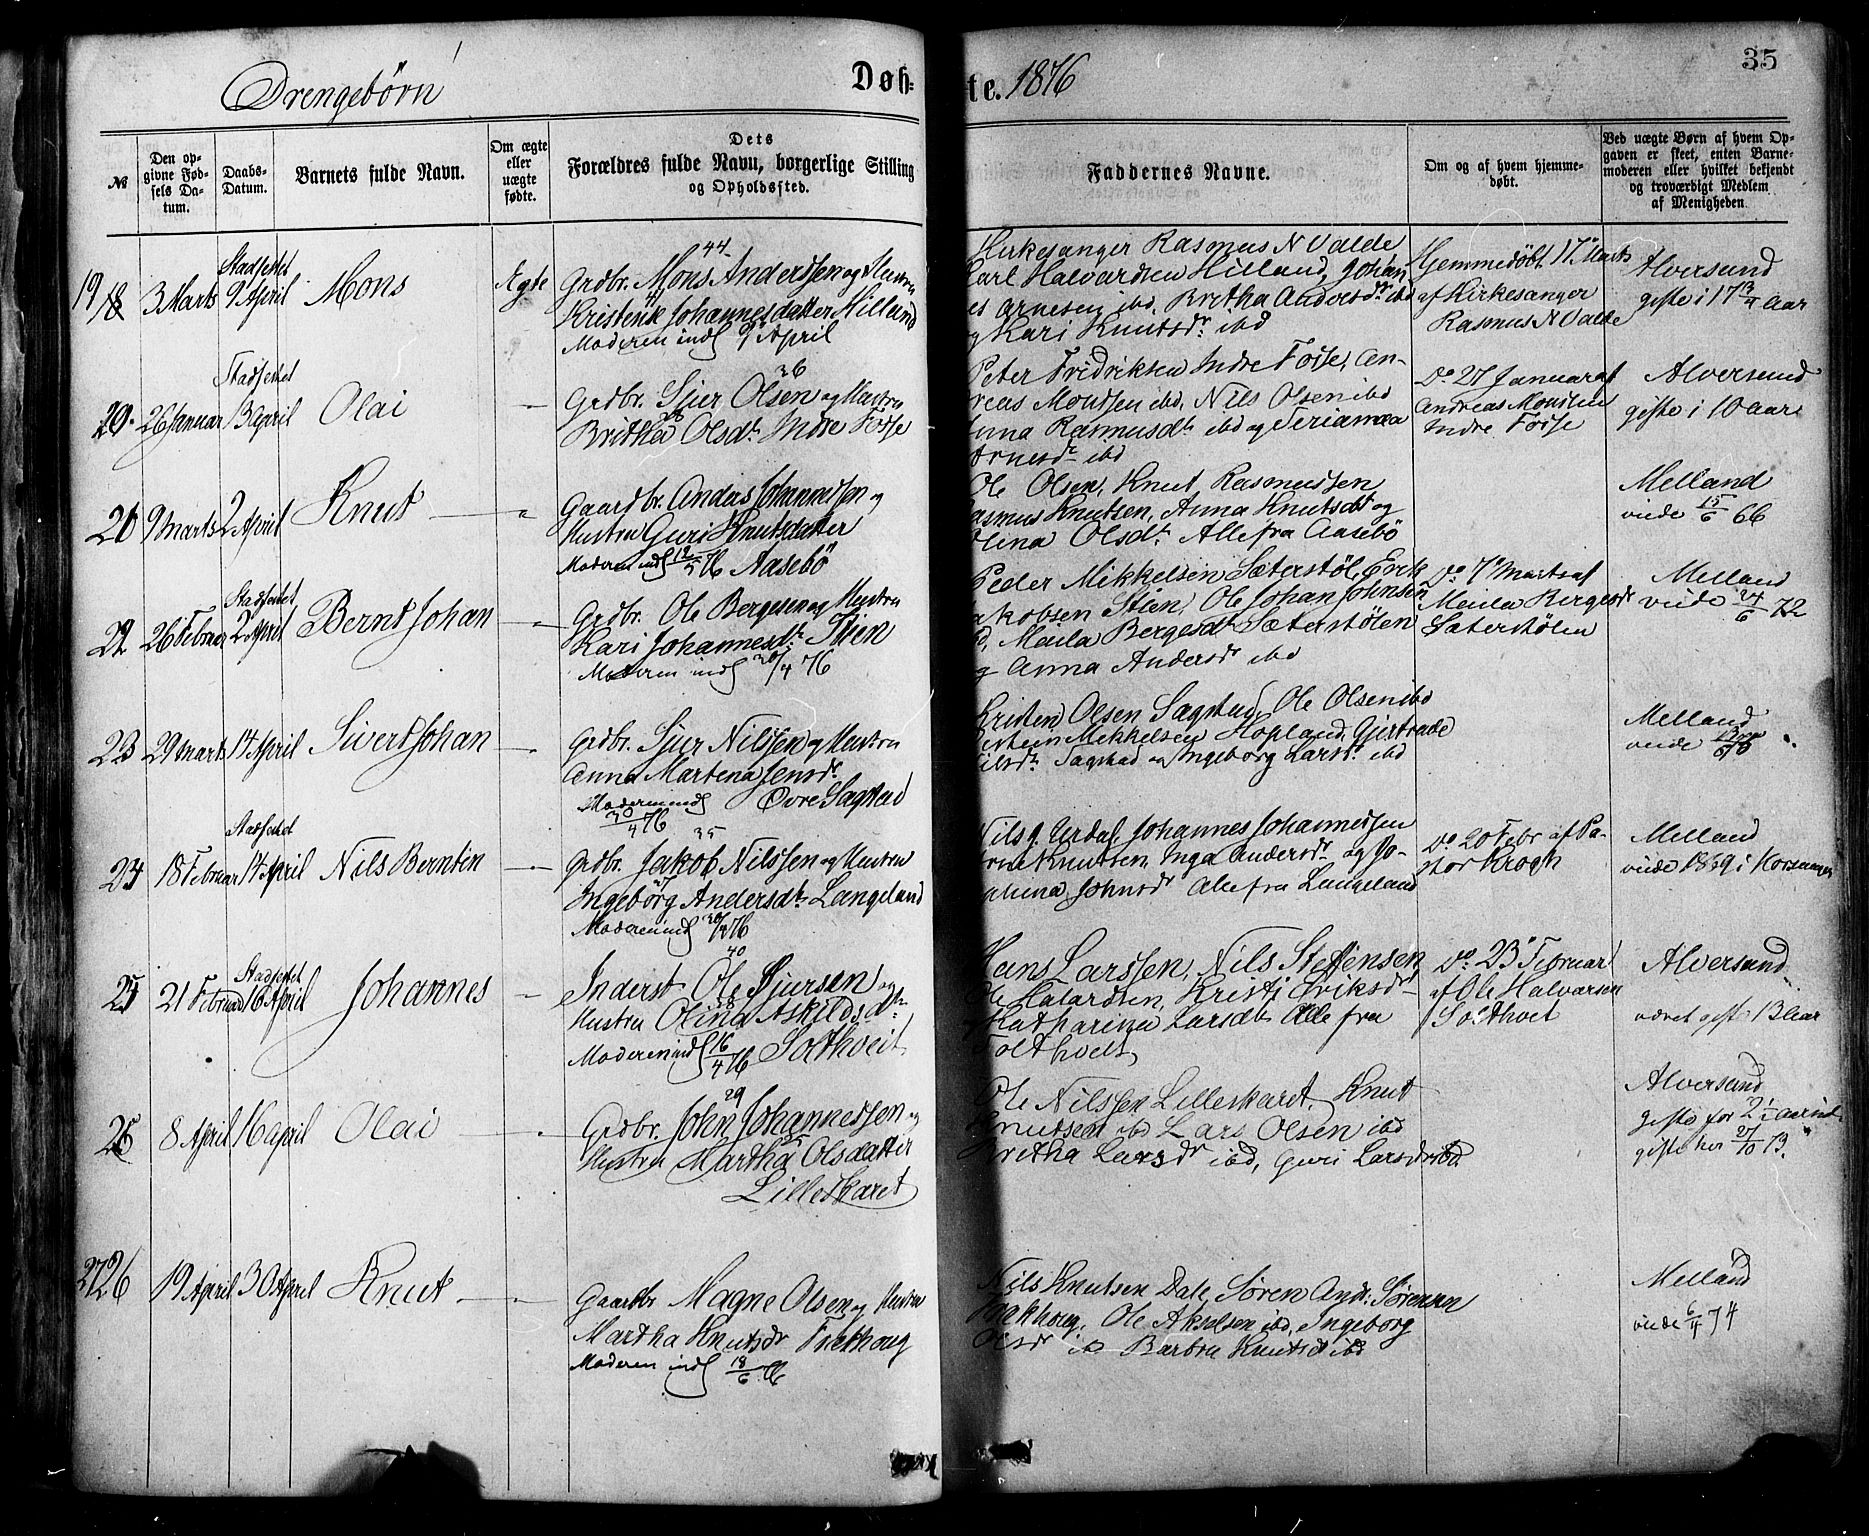 Drengebørn
Døb=
te. 1876
35
№
Den op-
givne Fød-
sels Da-
tum.
Daabs-
Datum.
Barnets fulde Navn.
Om ægte
eller
uægte
fødte.
Dets
Forældres fulde Navn, borgerlige Stilling
og Opholdssted.
Faddernes Navne.
Om og af hvem hjemme-
døbt.
Ved uægte Børn af hvem Op-
gaven er skeet, enten Barne-
moderen eller hvilket bekjendt
og troværdigt Medlem
af Menigheden.
19 18 3 Marts Stadfestet 9 April Mons Ægte
44
Grdbr. Mons Anderssen og Hustru
Johannesdatter Hilland
Moderen indl 9 April
Kirkesanger Rasmus N Valde
Karl Halvardsen Hilland, Johan
es Arnesen ibd, Britha Andersdr ibd
og Kari Knutsdr ibd
Hjemmedøbt 17 Marts
af Kirkesanger
Rasmus N Valde
Alversund
gifte i 17 Aar
20. 26 Januar Stadfestet 13 April Olai
36
Grdbr. Sjur Olsen og Hustru
28
Britha Olsdt Indre Fosse
Peter Fridriksen Indre Fosse, An-
reas Monssen ibd, Nils Olsen ibd
nna Rasmusdt ibd og
Arnesdr ibd
Do 27 Januar af
Andreas Monssen
Indre Fosse
Alversund
gifte i 10 Aar
9 Marts 2 April Knut
Gaardbr. Anders Johannessen og
Hustru Guri Knutsdatter
Moderen indl 76 Aasebö
Ole Olsen, Knut Rasmussen
asmus Knutsen, Anna Knutsdt og
lina Olsdt Alle fra Aasebö
Melland
viede 15/6 66
26 Februar Stadfestet 2 April Bernt Johan
Grdbr. Ole Bergesen og Hustru
Kari Johannesdt Stien
Moderen indl 30/4 76
Peder Mikkelsen Sæterstöl, Erik
akobsen Stien, Ole Johan Johnsen
d, Maila Bergesdt Sæterstölen
g Anna Andersdr ibd
Do 7 Marts af
Maila Bergesdr
Sæterstölen
Melland
viede 24/6 72
23 29 Marts 14 April Sivert Johan
Grdbr. Sjur Nilssen og Hustru
Anna Martena Jensdr
Moderen indl Övre Sagstad
30/4 76
Kristen Olsen Sagstad, Ole Olsen ibd
Mikkelsen Hopland, Gjertrude
ilsdr Sagstad og Ingeborg Larsdt ibd
Melland
viede
24 18 Februar Stadfestet 14 April Nils Berntin
35
Grdbr. Jakob Nilssen og Hustru
Ingebörg Andersdt Langeland
Moderen indl 30/4 76
Nils J. Urdal, Johannes Johannessen
rne Knutsen, Inga Andersdr og Jo-
Johnsdr Alle fra Langeland
Do 20 Febr af Pa-
stor Krogh
Melland
viede 1859 i
25 21 Februar Stadfestet 16 April Johannes
40
Inderst Ole Sjursen og
38
Hustru Olina Askildsdtr
Moderen indl 16/4 76 Solthveit
Hans Larssen, Nils Steffensen,
Ole Halvardsen, Kristi
Katharina Larsdt Alle fra
Soltveit
Do 23 Februar
af Ole Halvorsen
Solthvet
Alversund
været gift 13 Aar
8 April 16 April Olai
29
Grdbr. John Johannessen og
25
Hustru Martha Olsdatter
Lilleskaret
Ole Nilssen Lilleskaret, Knut
Knutsen ibd Lars Olsen ibd
Britha Larsdr ibd, Guri Larsdr ibd
Alversund
gifte for
gifte her 27/10 73.
27 26 19 April 30 April Knut
Gaardbr Magne Olsen og Hustru
Martha Knutsdr
Moderen indl 18/6 76
Nils Knutsen Dale, Søren Andr. Sørensen
Ole Akselsen ibd, Ingeborg
Olsdr ib Barbra Knutsdt ibd
Melland
viede 6/4 74